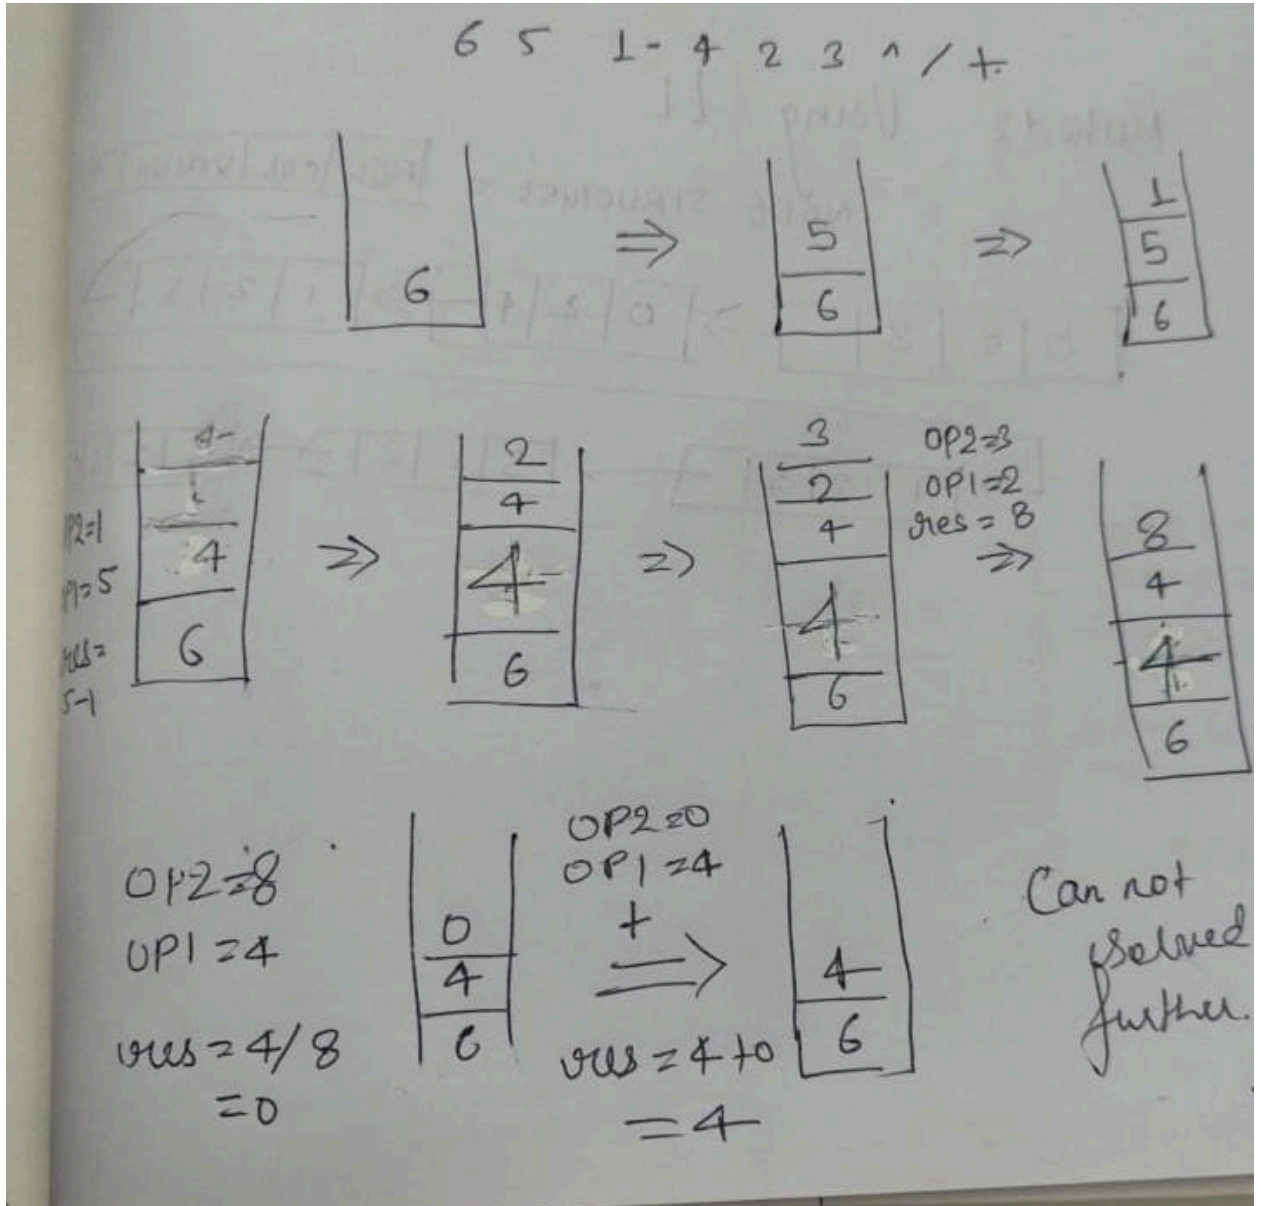 6 5 1 - 4 2 3 ^ / +
6
⇒
5
6
⇒
1
5
6
OP2=1
OP1=5
res=
5-1
4
6
⇒
2
4
4
6
⇒
3
2
4
4
6
OP2=3
OP1=2
res = 8
⇒
8
4
4
6
OP2=8
OP1=4
res = 4/8
=0
0
4
6
OP2=0
OP1=4
+
⇒
res = 4+0
=4
4
6
Can not
solved
further.